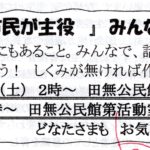 民が主役 』 みんな
にもあること。みんなで、話
う! しくみが無ければ作
(土) 2時〜 田無公民館
〜 田無公民館第活動室
どなたさまも お気